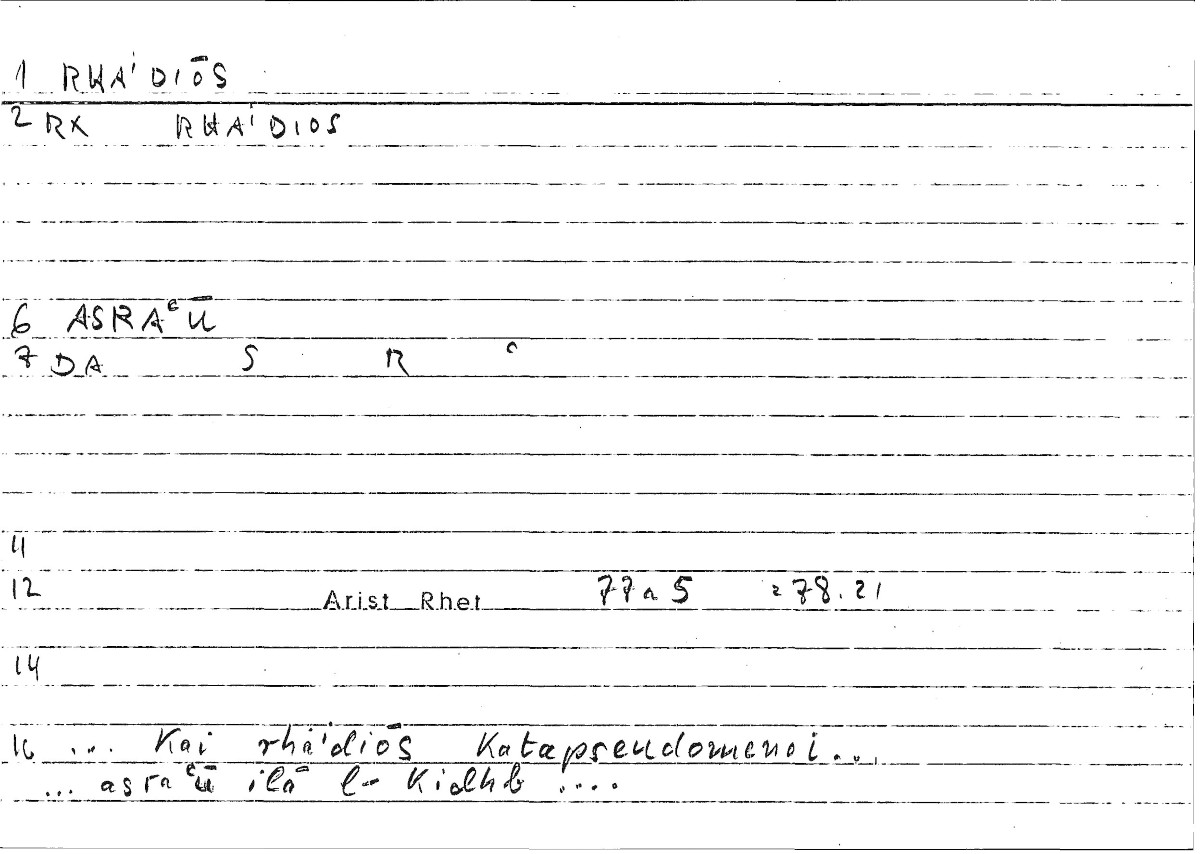 1 RHA'DIŌS
2 RX RHA'DIOS
6 ASRAʿŪ
7 DA S R ʿ
11
12 Arist Rhet 77a5 278.21
14
16 ... kai rhā'diōs katapseudomenoi...
... asraʿū ilā l-kidhb ....